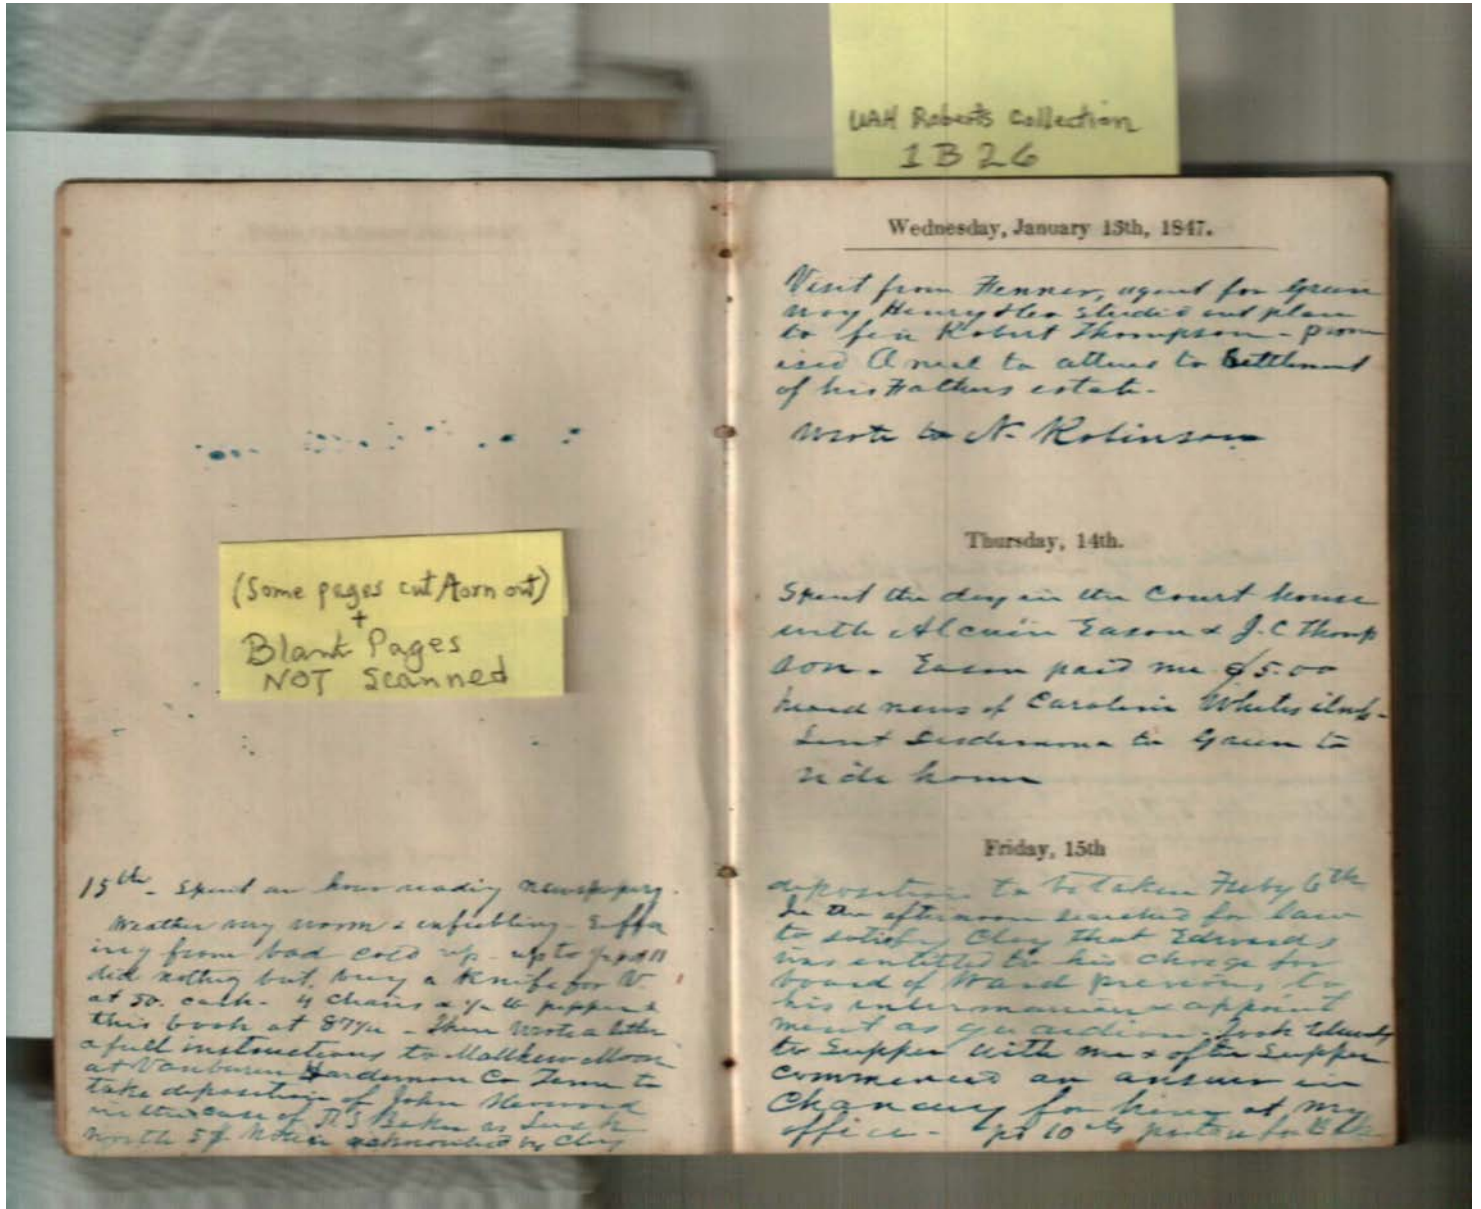 UAH Roberts Collection
1B26
(Some pages cut/torn out)
+
Blank Pages
NOT Scanned
15th - Spent an hour reading newspapers.
Weather very warm & enfeebling - Suffer
ing from bad cold up - up to
did nothing but buy a Knife for V
at 50. cash - 4 chairs &
this book at 87½ - Then wrote a letter
& full instructions to Matthew Moon
at Vanburen Hardemon Co Tenn to
take deposition of John
in the case of D.S Baker
acknowledged by Clay
Wednesday, January 13th, 1847.
Visit from Fenner, agent for Green
Henry studied out plan
to Robert Thompson - prom
ised to attend to Settlement
of his Fathers estate -
Wrote to N. Robinson
Thursday, 14th.
Spent the day in the Court house
with Alcuin Eason & J. C Thomp
son - Eason paid me $5.00
heard news of Caroline Whites
Sent Desdemona to Green to
ride home
Friday, 15th
deposition to be taken Feby 6th
In the afternoon searched for law
to satisfy Clay that Edwards
was entitled to his charge for
board of Ward previous to
his intermarriage & appoint
ment as guardian - Took Edwards
to Supper with me & after Supper
commenced an answer in
Chancery for him at my
office - pd 10 cts postage for